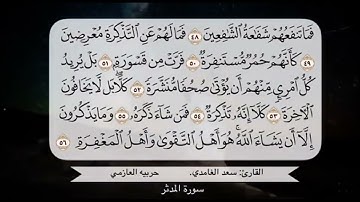 فَمَا تَنفَعُهُمْ شَفَٰعَةُ ٱلشَّٰفِعِينَ ٤٨ فَمَا لَهُمْ عَنِ ٱلتَّذْكِرَةِ مُعْرِضِينَ
٤٩ كَأَنَّهُمْ حُمُرٌ مُّسْتَنفِرَةٌ ٥٠ فَرَّتْ مِن قَسْوَرَةٍ ٥١ بَلْ يُرِيدُ
كُلُّ ٱمْرِئٍ مِّنْهُمْ أَن يُؤْتَىٰ صُحُفًا مُّنَشَّرَةً ٥٢ كَلَّا بَل لَّا يَخَافُونَ
ٱلْأٓخِرَةَ ٥٣ كَلَّآ إِنَّهُۥ تَذْكِرَةٌ ٥٤ فَمَن شَآءَ ذَكَرَهُۥ ٥٥ وَمَا يَذْكُرُونَ
إِلَّآ أَن يَشَآءَ ٱللَّهُ هُوَ أَهْلُ ٱلتَّقْوَىٰ وَأَهْلُ ٱلْمَغْفِرَةِ ٥٦
القارئ: سعد الغامدي. حربيه العازمي
سورة المدثر